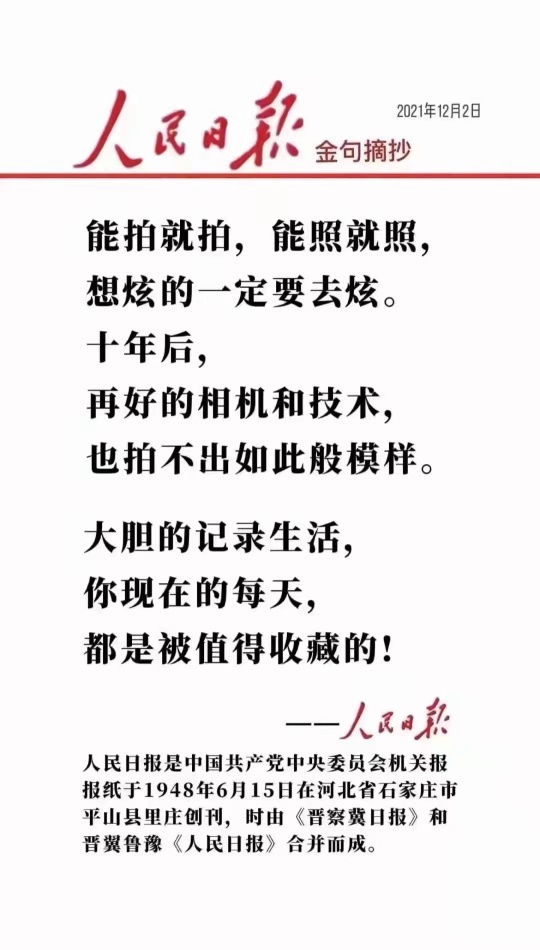 人民日报 金句摘抄 2021年12月2日
能拍就拍，能照就照，
想炫的一定要去炫。
十年后，
再好的相机和技术，
也拍不出如此般模样。
大胆的记录生活，
你现在的每天，
都是被值得收藏的！
——人民日报
人民日报是中国共产党中央委员会机关报
报纸于1948年6月15日在河北省石家庄市
平山县里庄创刊，时由《晋察冀日报》和
晋翼鲁豫《人民日报》合并而成。